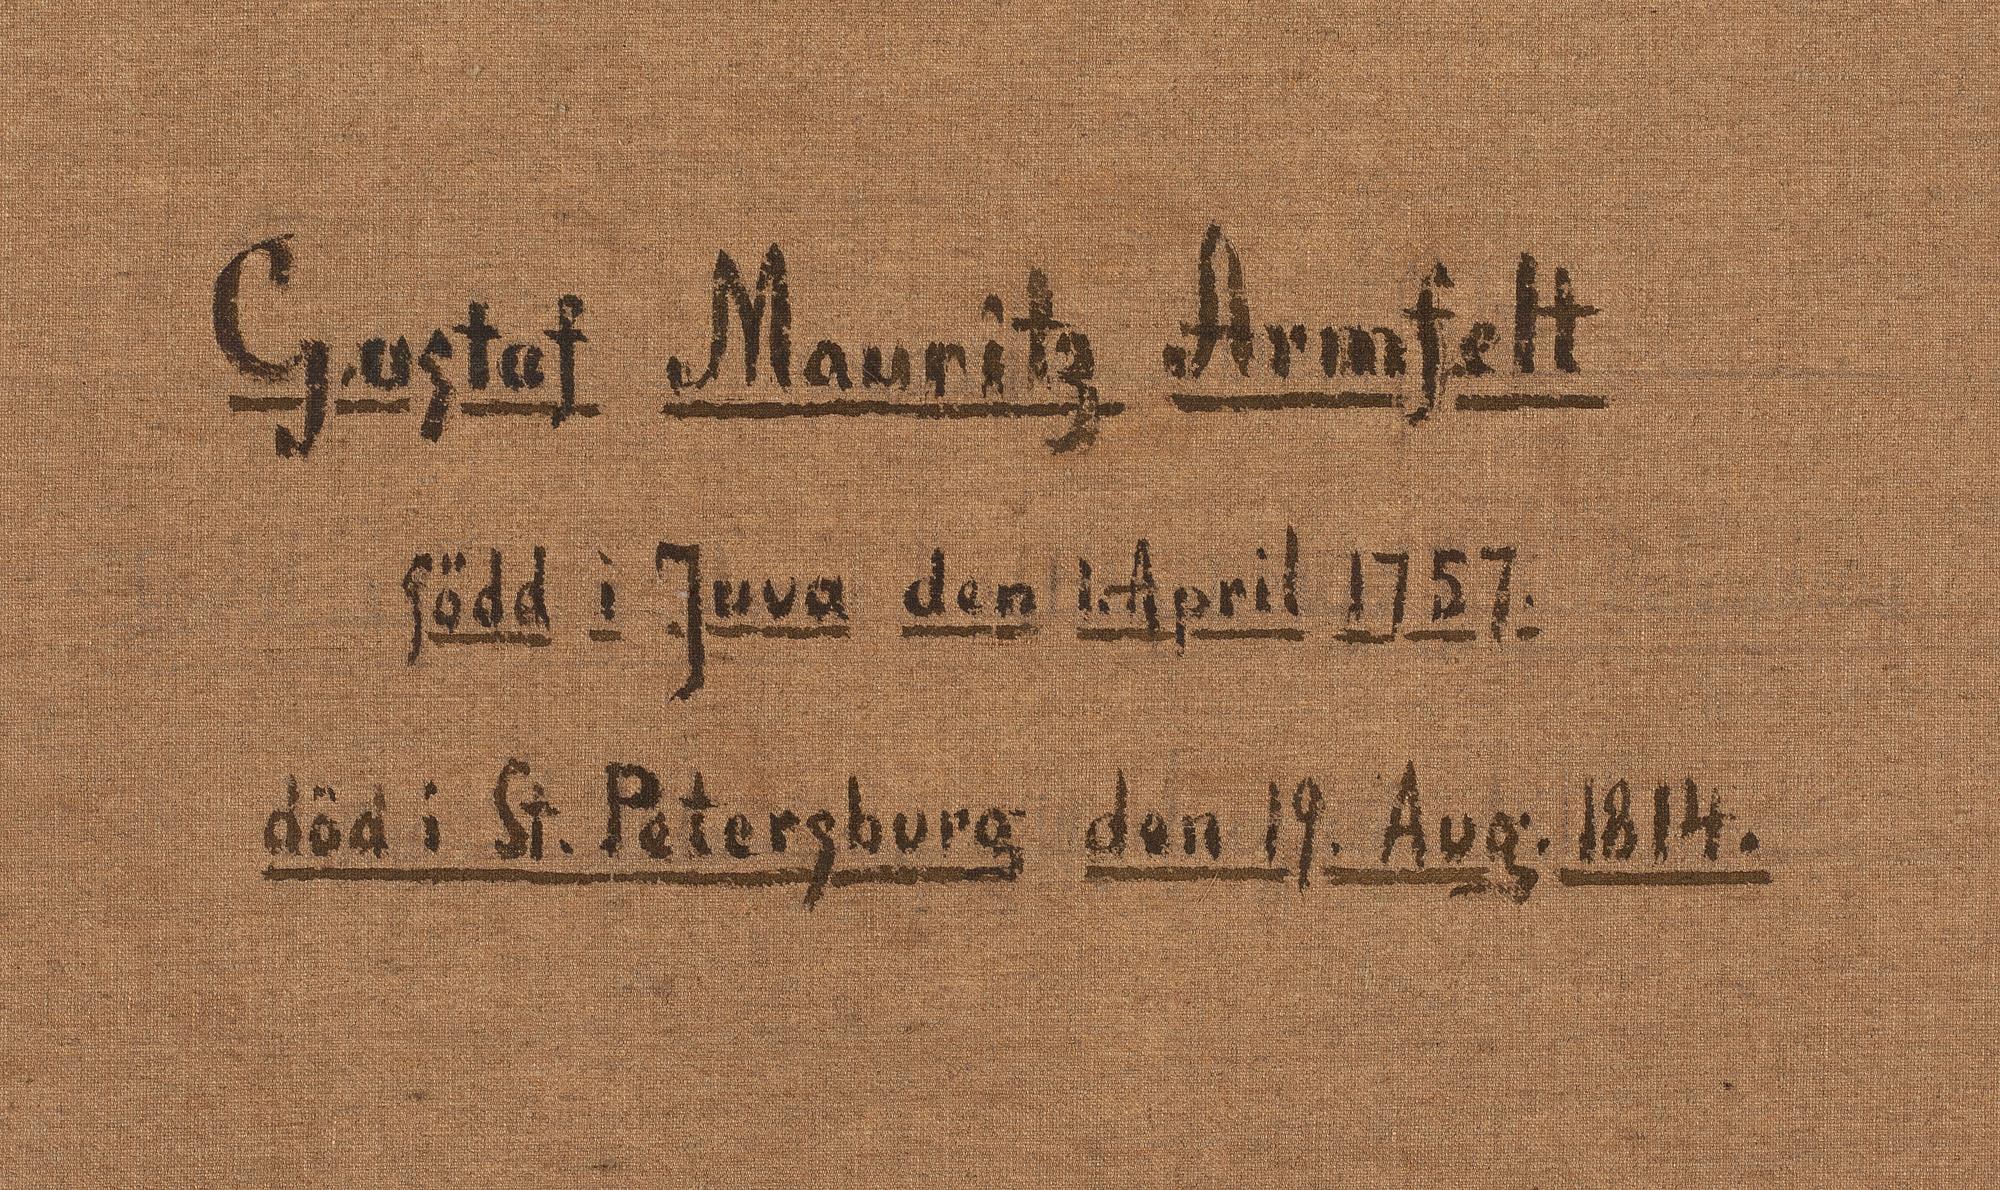 Gustaf Mauritz Armfelt
född i Juva den 1. April 1757.
död i St. Petersburg den 19. Aug. 1814.